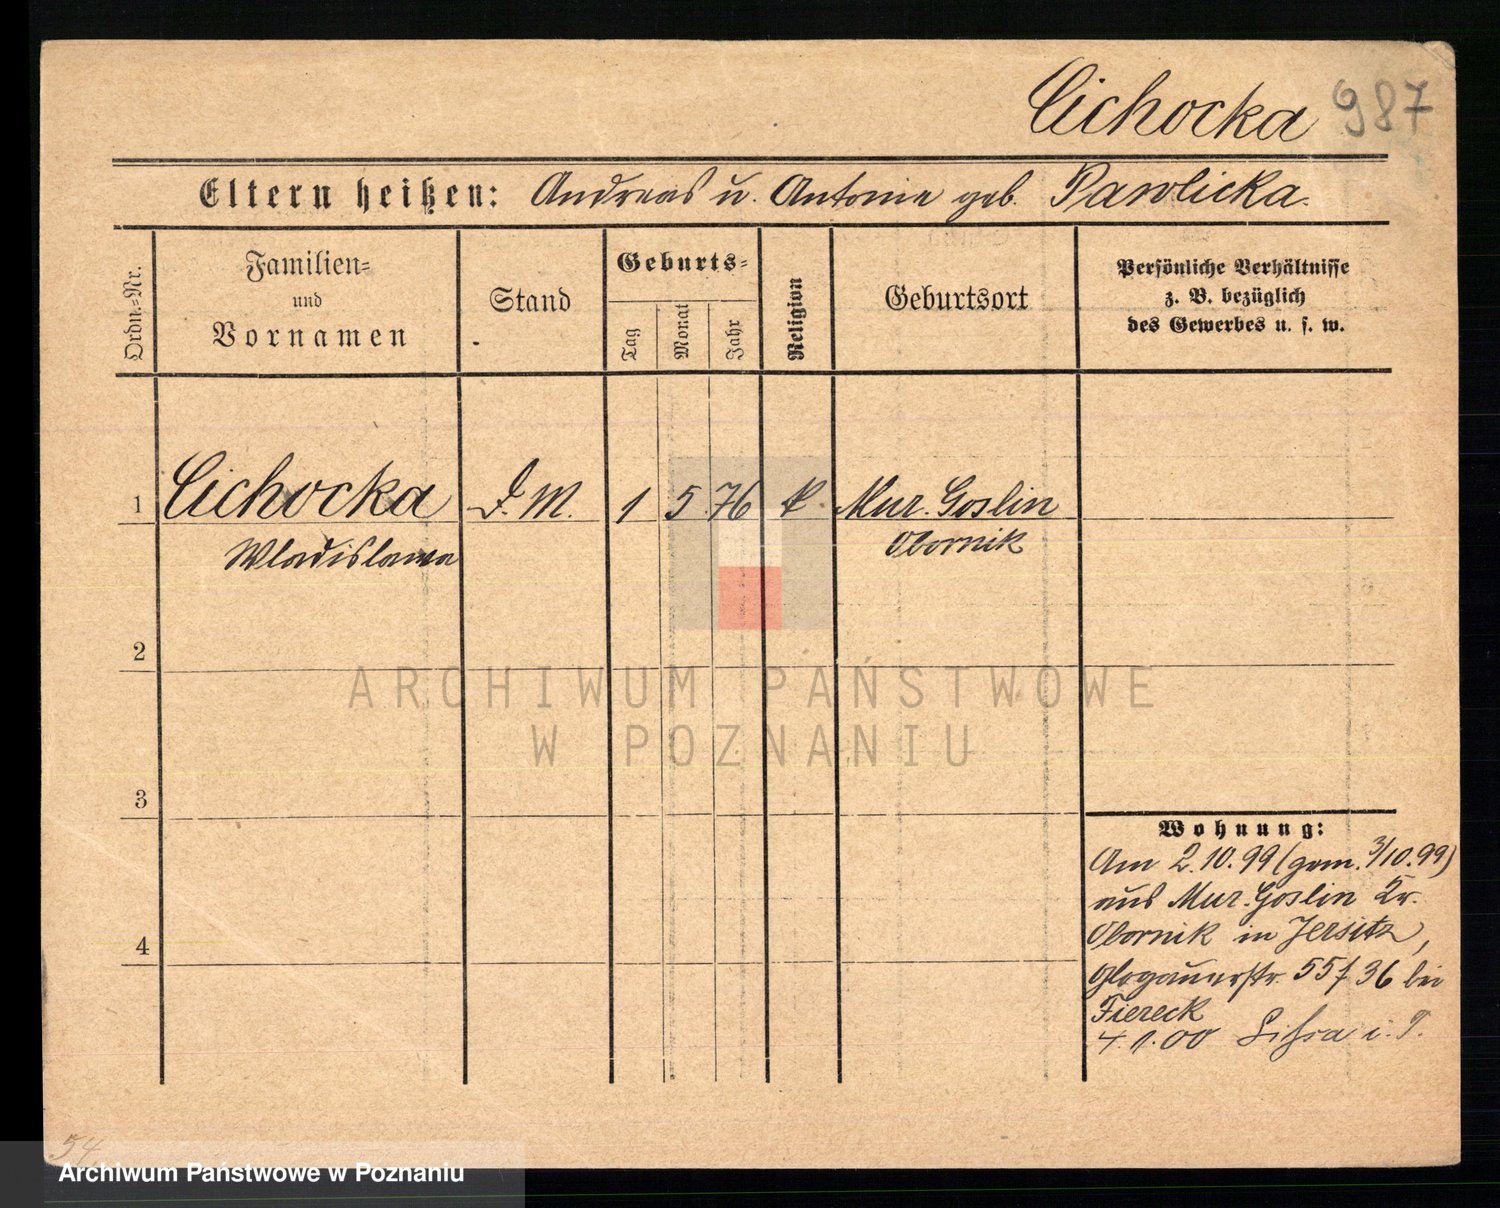 Cichocka 987
Eltern heißen: Andreas u. Antonie geb. Pawlicka.
Ordn.-Nr.
Familien-
und
Vornamen
Stand
Geburts-
Tag
Monat
Jahr
Religion
Geburtsort
Persönliche Verhältnisse
z. B. bezüglich
des Gewerbes u. s. w.
1 Cichocka D. M. 1 5 76 k. Mur. Goslin
Wladislawa Obornik
2
ARCHIWUM PAŃSTWOWE
W POZNANIU
3
Wohnung:
Am 2.10.99 (gem. 3/10.99)
aus Mur. Goslin Kr.
4 Obornik in Jersitz,
Glogauerstr. 55/36 bei
Fiereck
4.1.00 i. P.
54
Archiwum Państwowe w Poznaniu